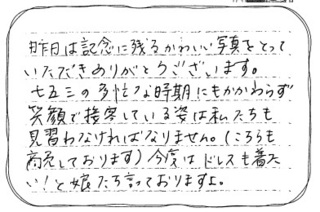 昨日は記念に残るかわいい写真をとって
いただきありがとうございます。
七五三の多忙な時期にもかかわらず
笑顔で接客している姿は私たちも
見習わなければなりません。(こちらも
商売しております)今度はドレスも着た
い!と娘たち言っておりますよ。